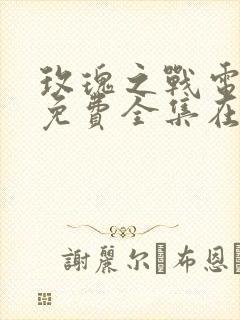 玫瑰之戰電
免費全集在
謝麗尔·布恩